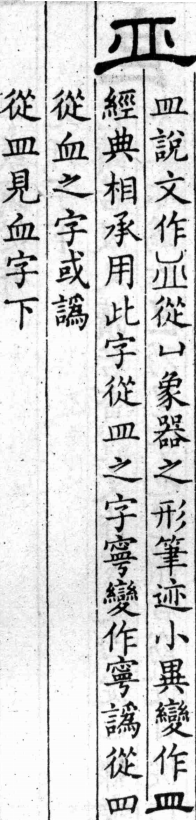 皿
皿說文作從凵象器之形筆迹小異變作皿
經典相承用此字從皿之字寧變作寧譌從四
從血之字或譌
從皿見血字下